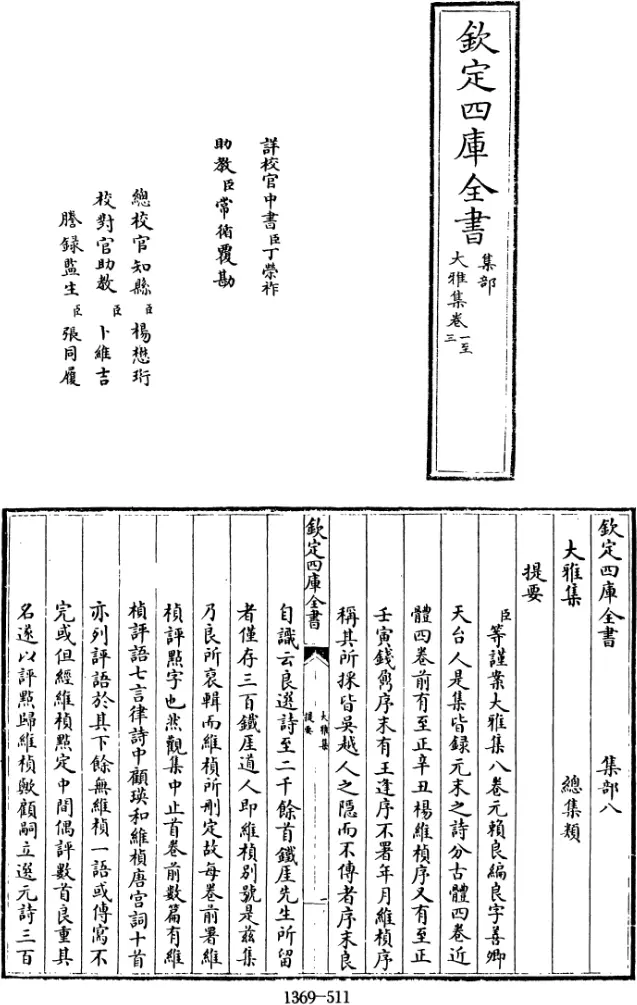 欽定四庫全書
集部
大雅集卷一至三
詳校官中書臣丁榮祚
助教臣常循覆勘
總校官知縣臣楊懋珩
校對官助教臣卜維吉
謄錄監生臣張同履
欽定四庫全書 集部八
大雅集 總集類
提要
臣等謹案大雅集八卷元賴良編良字善卿
天台人是集皆録元末之詩分古體四卷近
體四卷前有至正辛丑楊維楨序又有至正
壬寅錢鼒序末有王逢序不署年月維楨序
稱其所採皆吳越人之隠而不傳者序末良
欽定四庫全書 大雅集 提要 一
自識云良選詩至二千餘首鐵崖先生所留
者僅存三百鐵崖道人即維楨别號是兹集
乃良所裒輯而維楨所刪定故每卷前署維
楨評點字也然觀集中止首卷前數篇有維
楨評語七言律詩中顧瑛和維楨唐宫詞十首
亦列評語於其下餘無維楨一語或傳寫不
完或但經維楨點定中間偶評數首良重其
名遂以評點歸維楨歟顧嗣立選元詩三百
1369-511